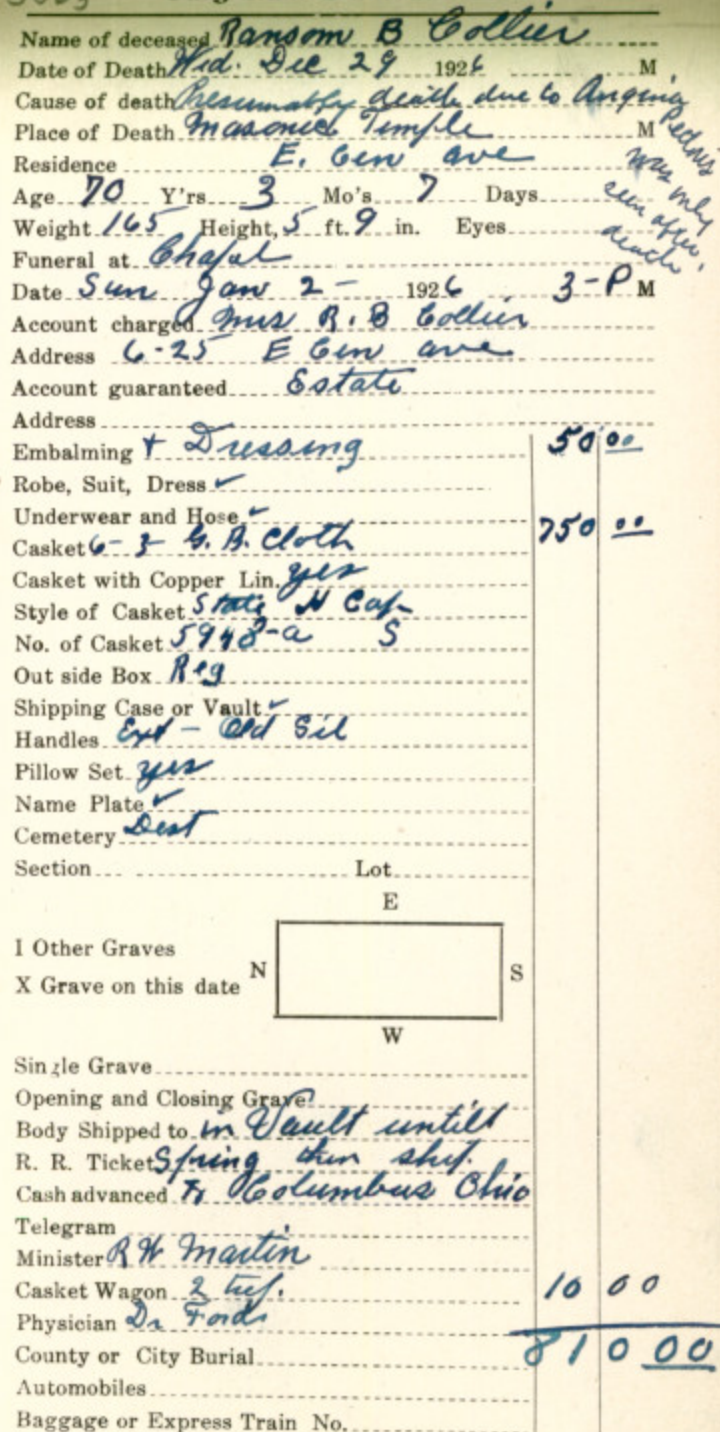 Name of deceased Ransom B Collier
Date of Death Wed. Dec 29 1926 M
Cause of death Presumably death due to Angina
Pectoris
was only
seen after
death.
Place of Death Masonic Temple M
Residence E. Cen ave
Age 70 Y'rs 3 Mo's 7 Days
Weight 165 Height, 5 ft. 9 in. Eyes
Funeral at Chapel
Date Sun Jan 2 - 1926 3-P M
Account charged Mrs R. B Collier
Address 6-25 E Cen ave
Account guaranteed Estate
Address
Embalming + Dressing 50 00
Robe, Suit, Dress ✓
Underwear and Hose ✓
Casket 6-3 G. B. Cloth 750 00
Casket with Copper Lin. yes
Style of Casket State H Cap
No. of Casket 5948-a S
Out side Box Reg
Shipping Case or Vault ✓
Handles Ext - Old Sil
Pillow Set yes
Name Plate ✓
Cemetery Dest
Section Lot
E
I Other Graves
N S
X Grave on this date
W
Single Grave
Opening and Closing Grave
Body Shipped to in Vault untill
R. R. Ticket Spring then ship.
Cash advanced To Columbus Ohio
Telegram
Minister R W Martin
Casket Wagon 2 10 00
Physician Dr Fords
County or City Burial 810 00
Automobiles
Baggage or Express Train No.